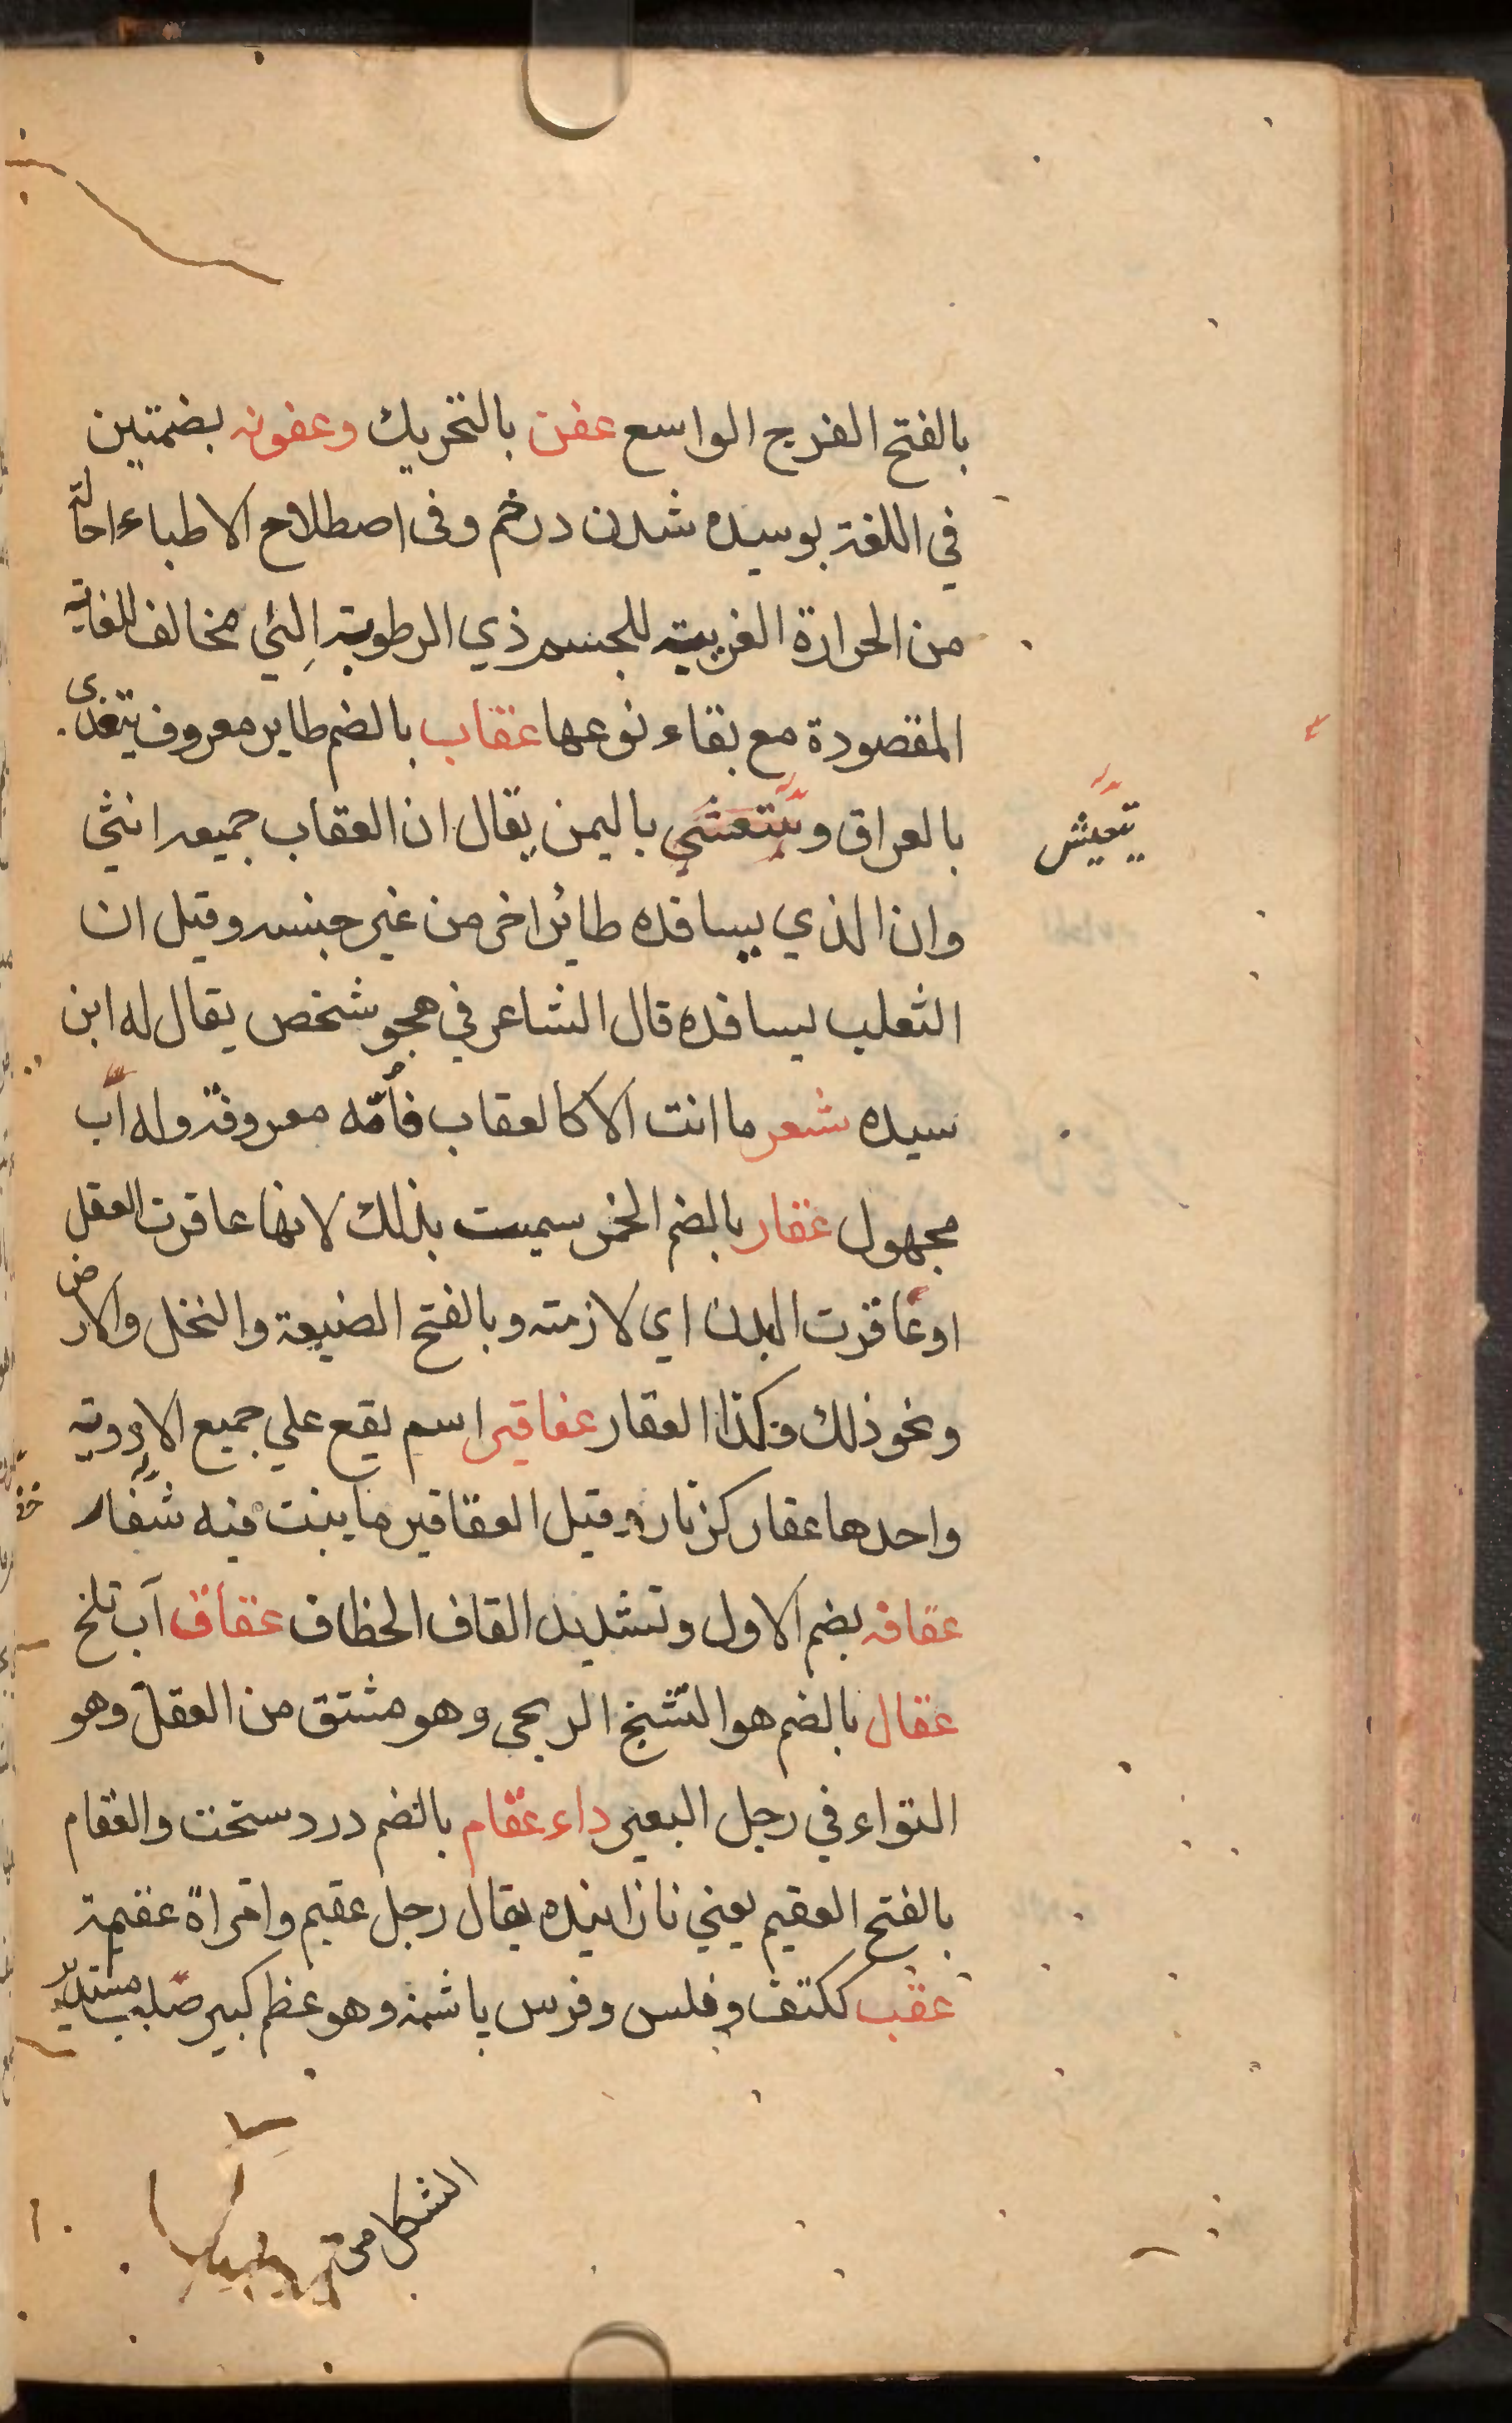 بالفتح الفرج الواسع عفن بالتحريك وعفونه بضمتين
في اللغة بوسيده شدن درخم وفى اصطلاح الاطباء احالة
من الحرارة الغريبية للجسم ذي الرطوبة الي مخالف للغاية
المقصودة مع بقاء نوعها عقاب بالضم طاير معروف يتغدى
بالعراق ويتعشي باليمن يقال ان العقاب جميعه انثي
يتعيش
وان الذي يسافده طائر اخر من غير جنسه وقيل ان
الثعلب يسافده قال الشاعر في هجو شخص يقال له ابن
سيده شعر ما انت الا كالعقاب فأمّه معروفة وله أب
مجهول عقار بالضم الخمر سميت بذلك لانها عاقرت العقل
او عاقرت البدن اي لازمته وبالفتح الضيعة والنخل والارض
ونحو ذلك وكذا العقار عقاقير اسم يقع علي جميع الادوية
واحدها عقار كزنار وقيل العقاقير ما ينبت فيه شفاء
عقافه بضم الاول وتشديد القاف الخطاف عقاق آب تلخ
عقال بالضم هو التشنج الريحي وهو مشتق من العقل وهو
التواء في رجل البعير داء عقام بالضم درد سخت والعقام
بالفتح العقيم يعني نازاينده يقال رجل عقيم وامراة عقيمة
عقب ككتف وفلس وفرس پاشنه وهو عظم كبير صلب مستدير
الشكل من